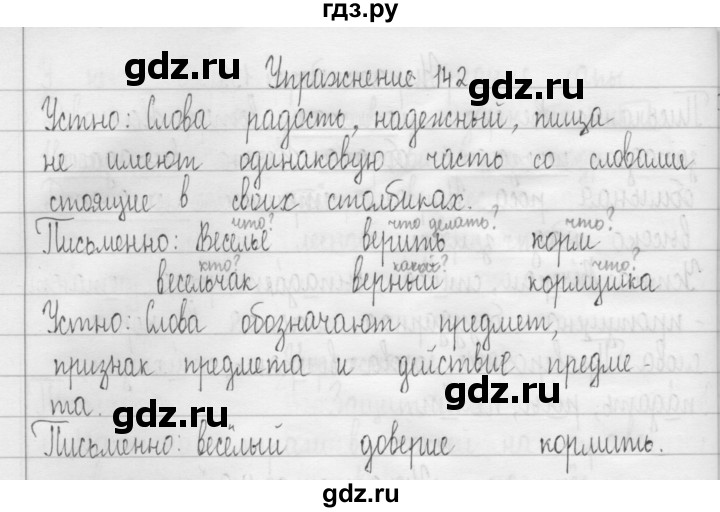 гдз.ру
Упражнение 142
gdz.ru gdz.ru
Устно: Слова радость, надежный, пища
не имеют одинаковую часть со словами
стоящие в своих столбиках.
что? что делать? что?
Письменно: Веселье верить корм
кто? какой? что?
весельчак верный кормушка
Устно: Слова обозначают предмет,
признак предмета и действие предме-
та.
gdz.ru gdz.ru
Письменно: весёлый доверие кормить.
gdz.ru